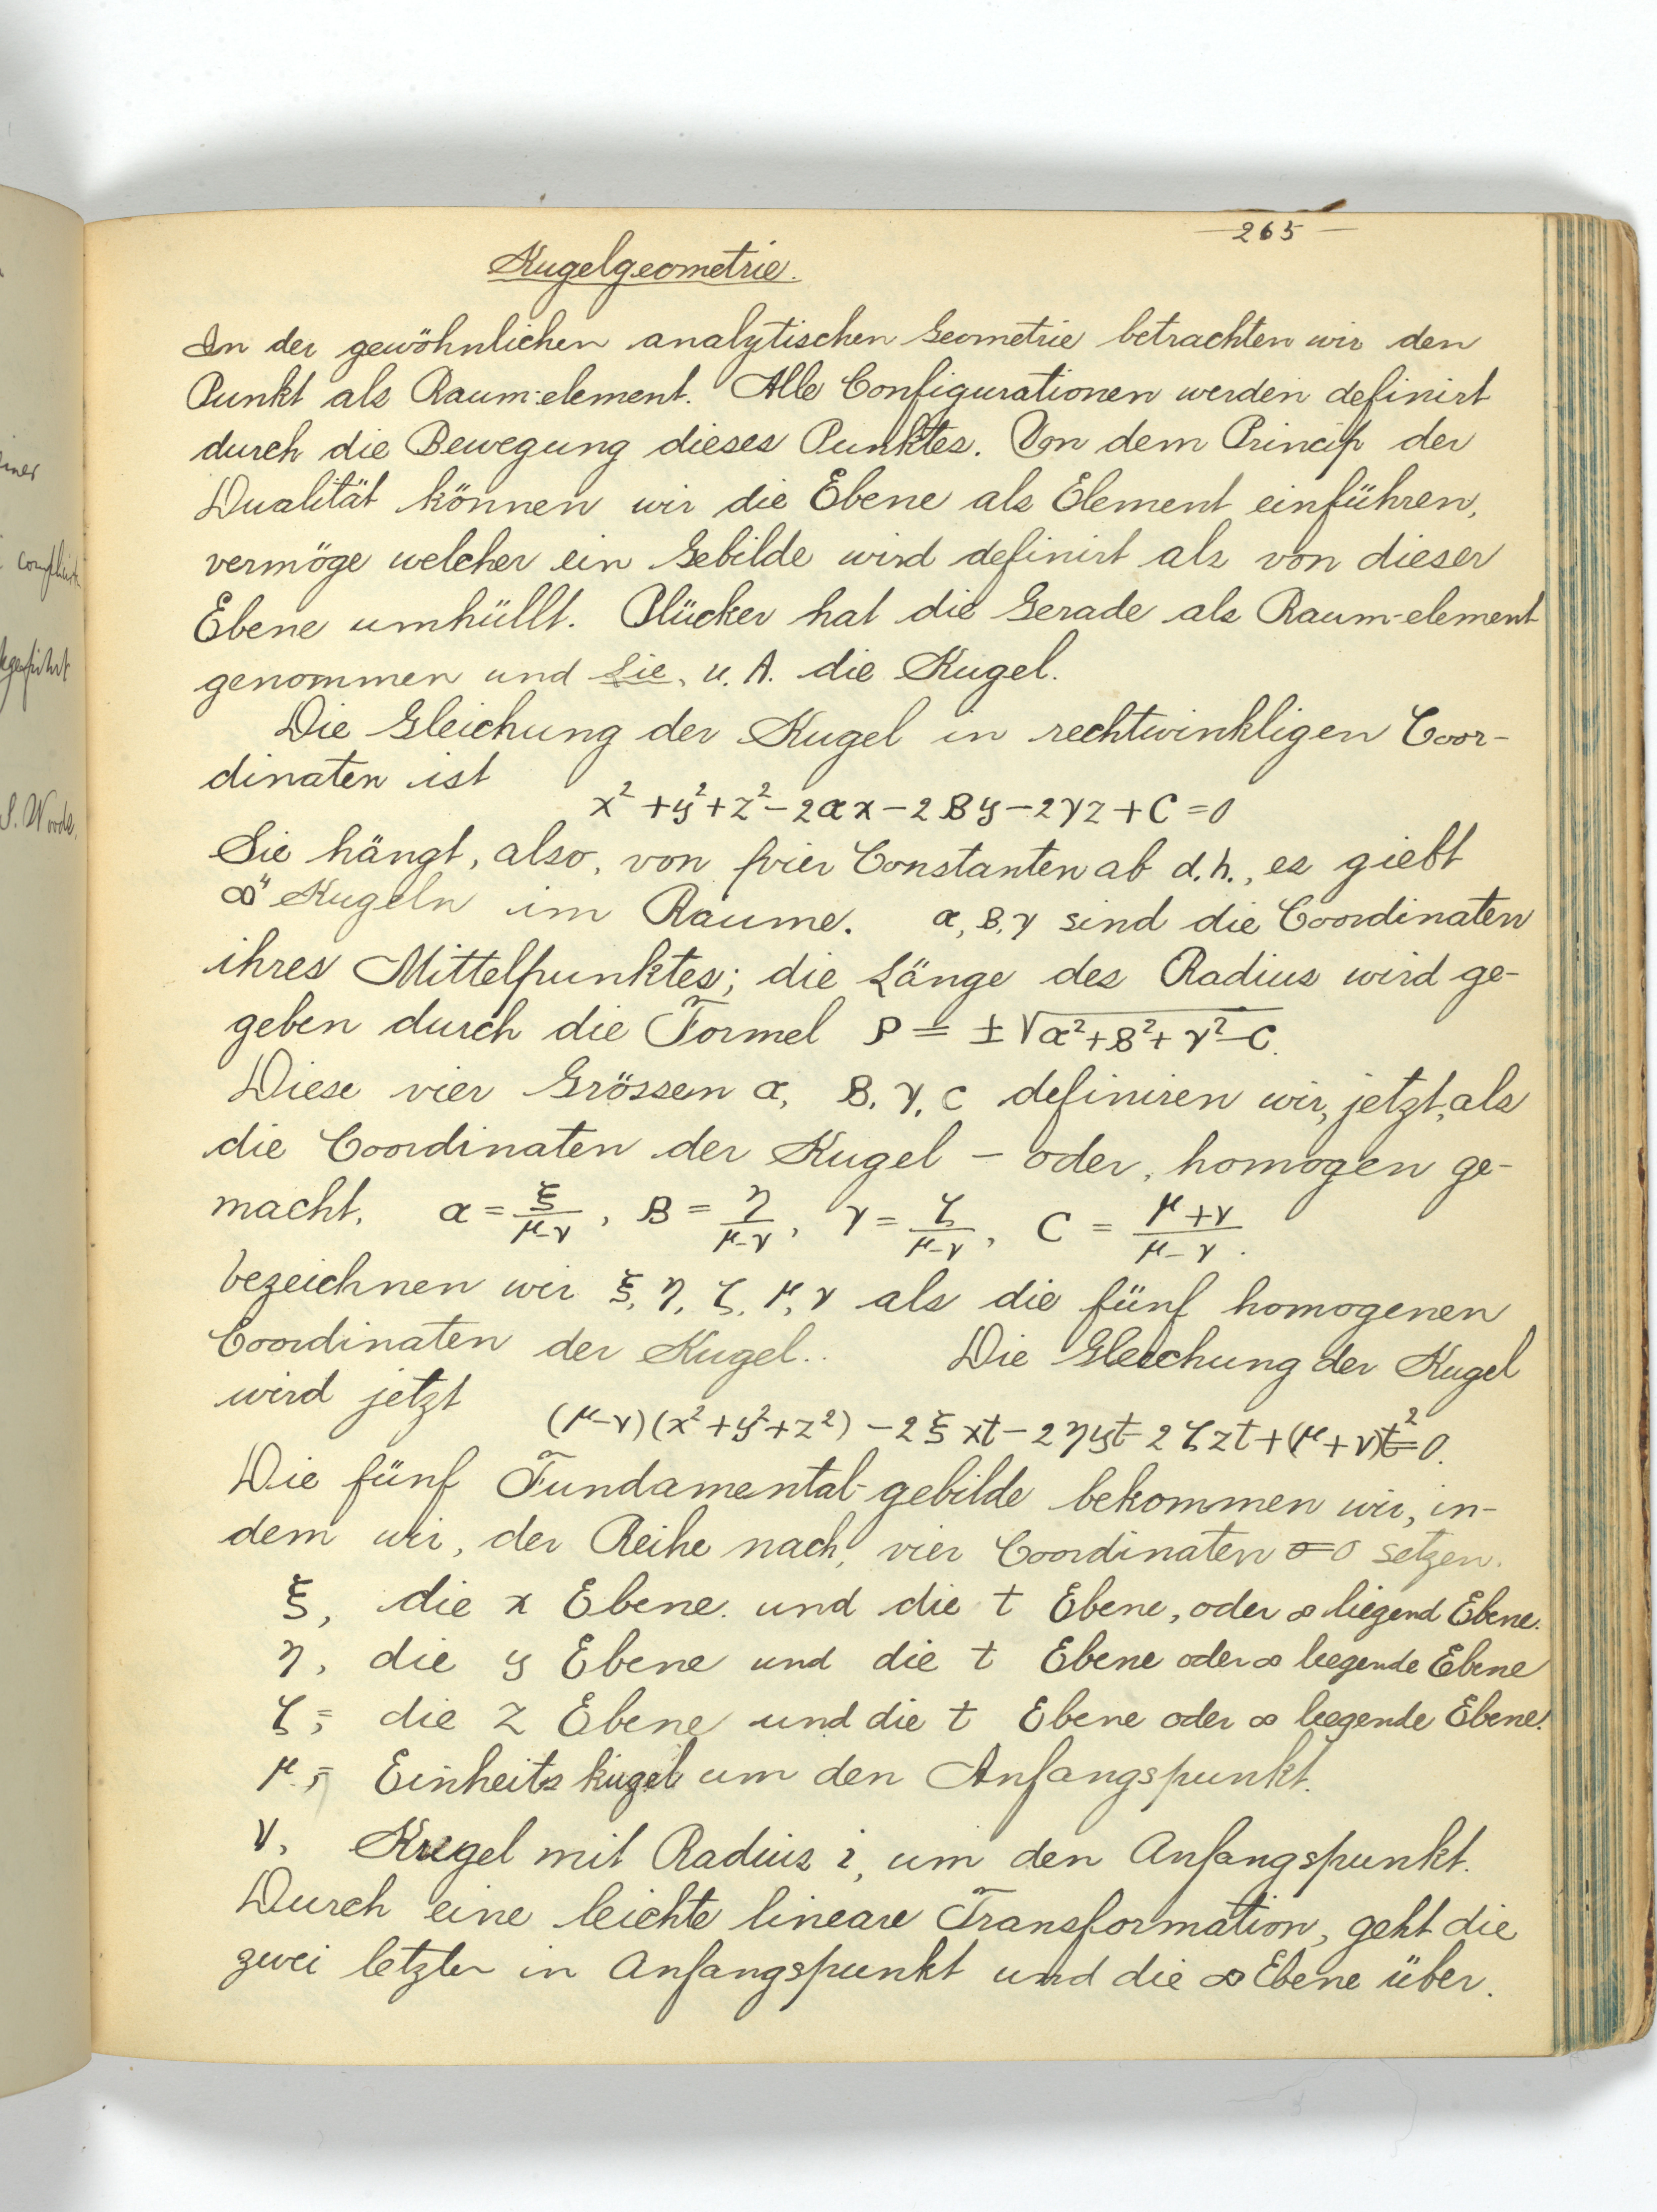 265
Kugelgeometrie.
In der gewöhnlichen analytischen Geometrie betrachten wir den
Punkt als Raum-element. Alle Configurationen werden definirt
durch die Bewegung dieses Punktes. Von dem Princip der
Dualität können wir die Ebene als Element einführen,
vermöge welcher ein Gebilde wird definirt als von dieser
Ebene umhüllt. Plücker hat die Gerade als Raum-element
genommen und Lie, u. A. die Kugel.
Die Gleichung der Kugel in rechtwinkligen Coor-
dinaten ist
x² + y² + z² - 2αx - 2βy - 2γz + C = 0
Sie hängt, also, von vier Constanten ab d.h., es giebt
∞⁴ Kugeln im Raume. α, β, γ sind die Coordinaten
ihres Mittelpunktes; die Länge des Radius wird ge-
geben durch die Formel ρ = ±√(α² + β² + γ² - C).
Diese vier Grössen α, β, γ, C definiren wir, jetzt, als
die Coordinaten der Kugel - oder, homogen ge-
macht, α = ξ/(μ-ν), β = η/(μ-ν), γ = ζ/(μ-ν), C = (μ+ν)/(μ-ν).
bezeichnen wir ξ, η, ζ, μ, ν als die fünf homogenen
Coordinaten der Kugel.. Die Gleichung der Kugel
wird jetzt
(μ-ν)(x² + y² + z²) - 2ξxt - 2ηyt - 2ζzt + (μ+ν)t² = 0.
Die fünf Fundamental-gebilde bekommen wir, in-
dem wir, der Reihe nach, vier Coordinaten = 0 setzen.
ξ, die x Ebene. und die t Ebene, oder ∞ liegend Ebene.
η, die y Ebene und die t Ebene oder ∞ liegende Ebene
ζ, = die z Ebene und die t Ebene oder ∞ liegende Ebene.
μ, = Einheitskugel um den Anfangspunkt.
ν, Kugel mit Radius i, um den Anfangspunkt.
Durch eine leichte lineare Transformation, geht die
zwei letzter in Anfangspunkt und die ∞ Ebene über.
S. Woods.